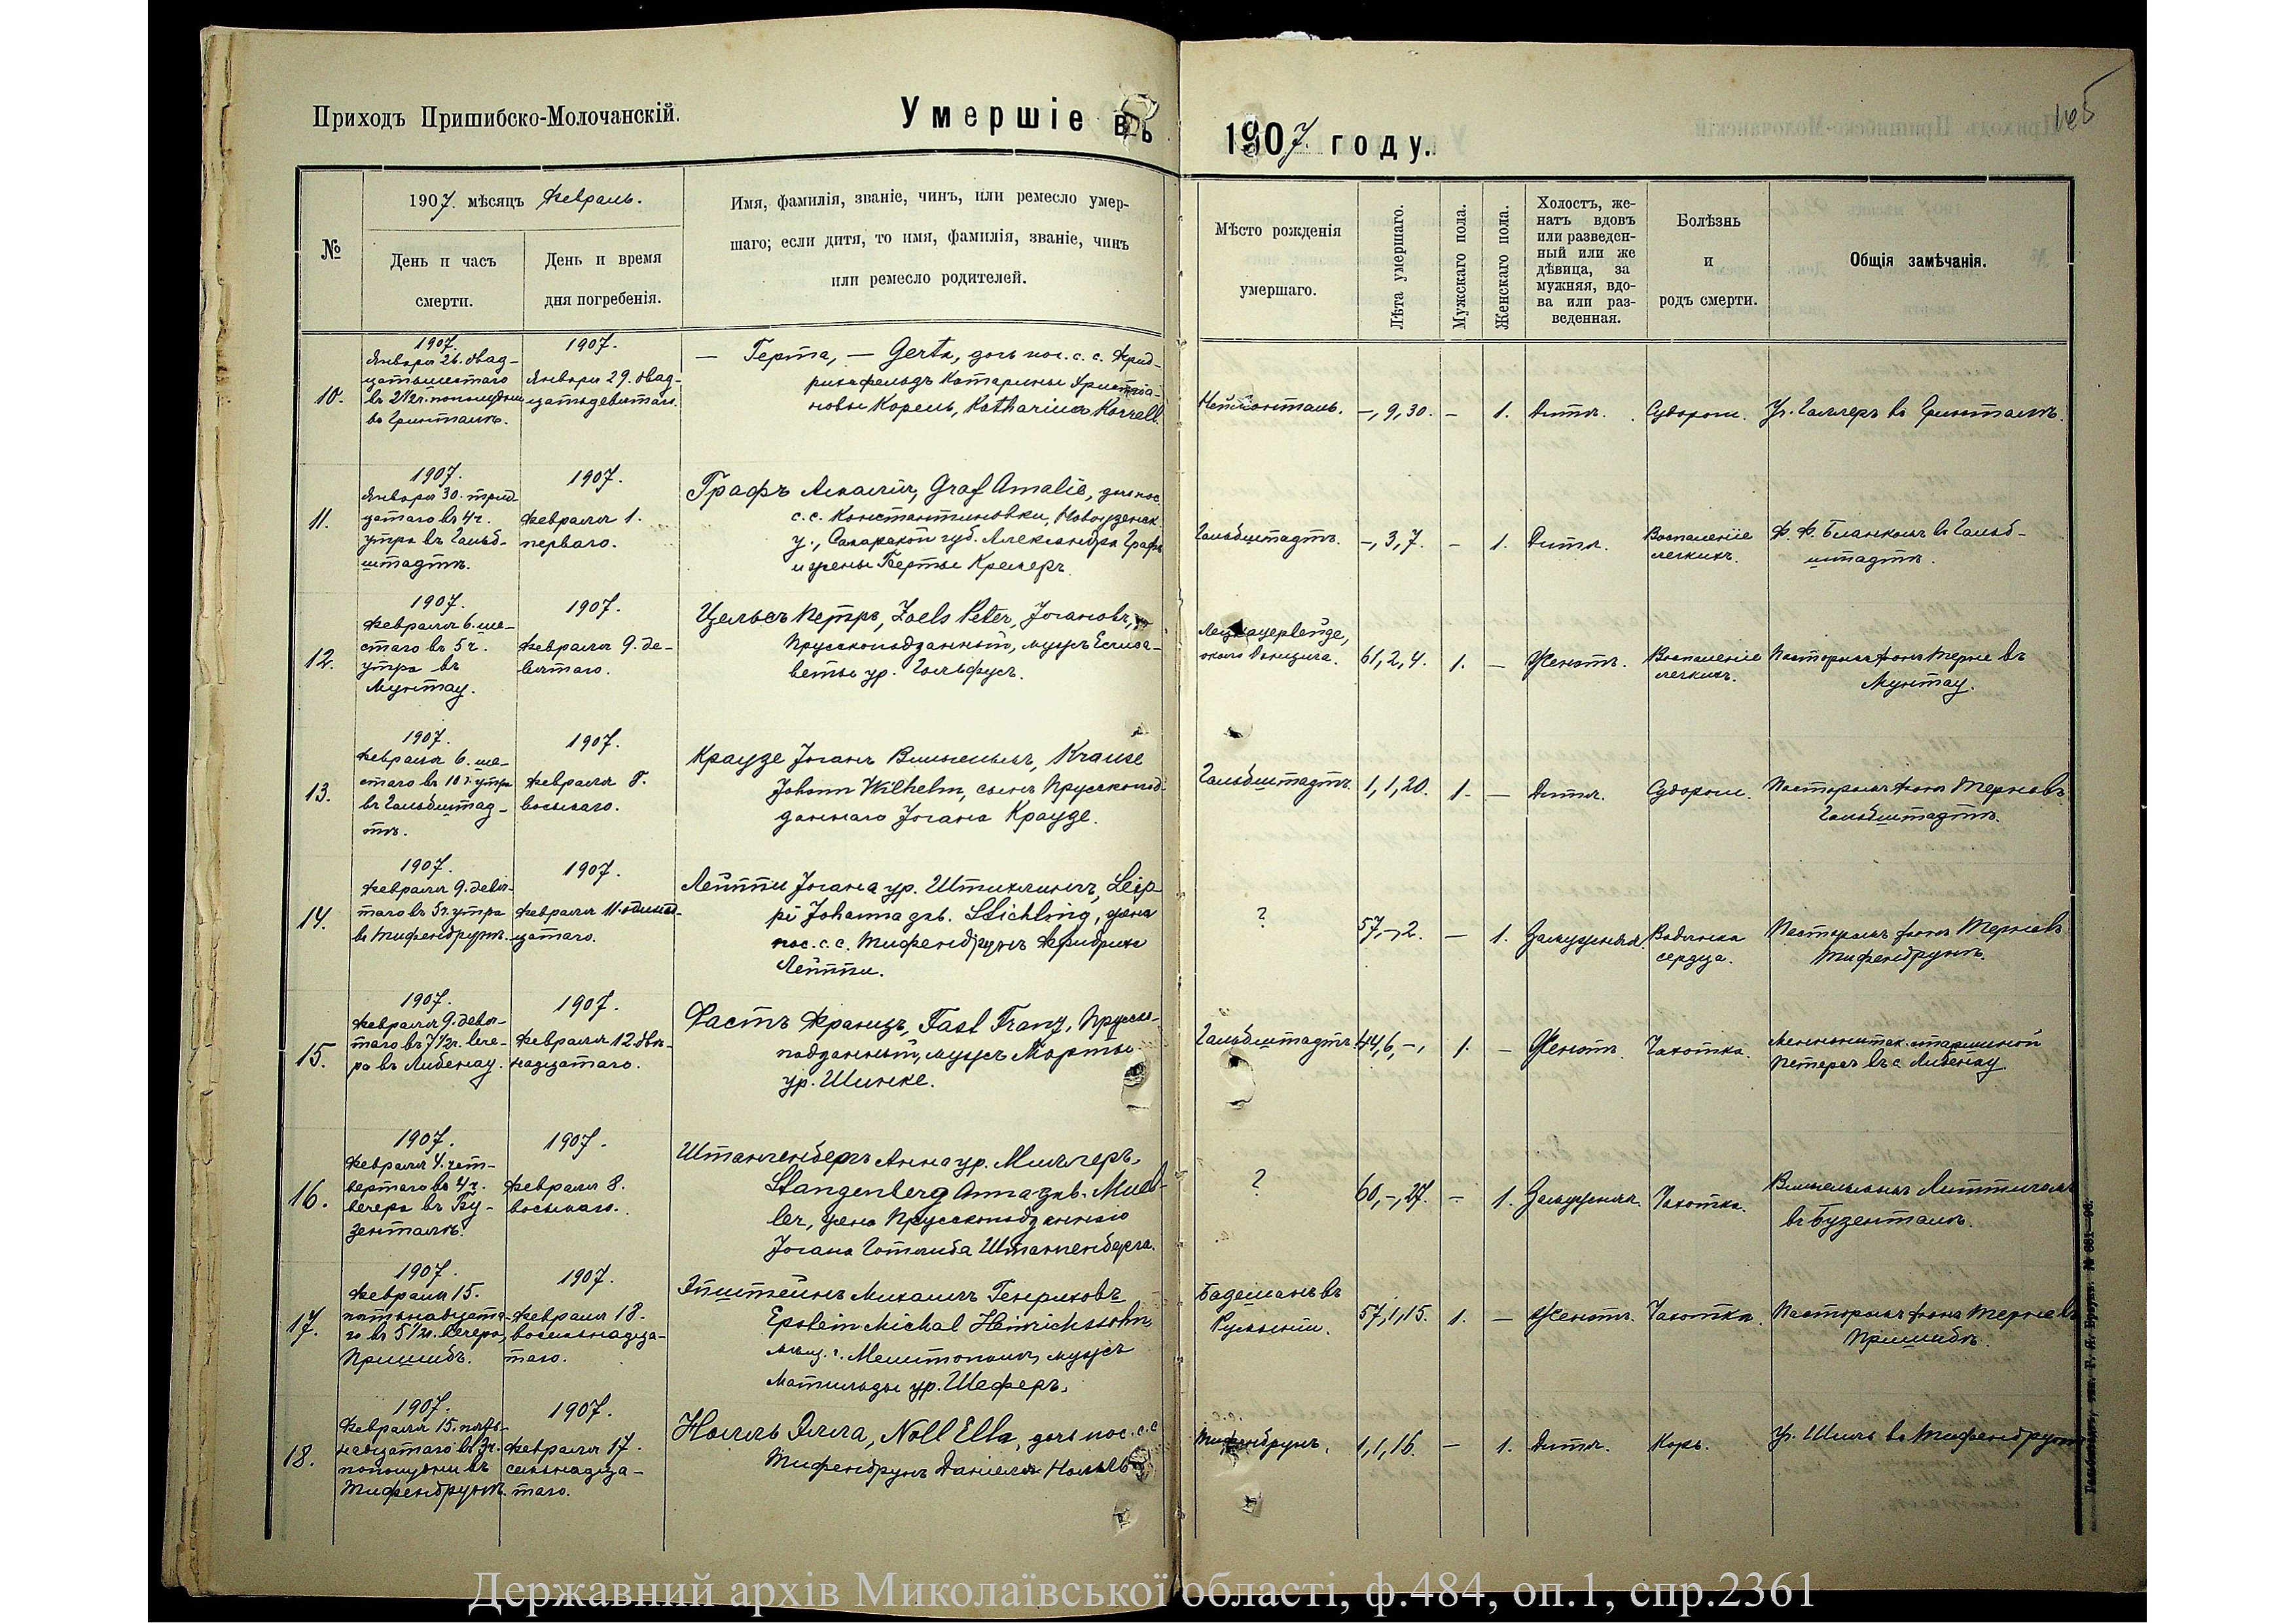 Приходъ Пришибско-Молочанскій.
Умершіе въ
1907 году.
№
1907. мѣсяцъ Февраль.
День и часъ
смерти.
День и время
дня погребенія.
Имя, фамилія, званіе, чинъ, или ремесло умер-
шаго; если дитя, то имя, фамилія, званіе, чинъ
или ремесло родителей.
Мѣсто рожденія
умершаго.
Лѣта умершаго.
Мужскаго пола.
Женскаго пола.
Холостъ, же-
натъ вдовъ
или разведен-
ный или же
дѣвица, за
мужняя, вдо-
ва или раз-
веденная.
Болѣзнь
и
родъ смерти.
Общія замѣчанія.
10.
1907.
Января 26. двад-
цатьшестаго
въ 2 1/2 ч. пополудни
въ Гринталѣ.
1907.
Января 29. двад-
цатьдевятаго.
— Герта, — Gerta, дочь пос. с. с. Фрид-
рихсфельдъ Катарины Христіа-
новы Корель, Katharina Korrell.
–, 9, 30. – 1. Дитя. Судороги. Уч. въ Гринталѣ.
11.
1907.
Января 30. трид-
цатаго въ 4 ч.
утра въ Гальб-
штадтѣ.
1907.
Февраля 1.
перваго.
Графъ Амалія, Graf Amalie, дочь пос.
с. с. Константиновки, Новоузенск.
у., Самарской губ. Александра Графъ
и жены Берты Кремеръ.
Гальбштадтъ. –, 3, 7. – 1. Дитя. Воспаленіе
легкихъ.
Ф. Ф. въ Гальб-
штадтѣ.
12.
1907.
Февраля 6. ше-
стаго въ 5 ч.
утра въ
Мунтау.
1907.
Февраля 9. де-
вятаго.
Цельсъ Петръ, Zoels Peter, Іогановъ,
Прусскоподданный, мужъ Елиза-
веты ур. Гольфусъ.
около Данцига. 61, 2, 4. 1. – Женатъ. Воспаленіе
легкихъ.
Пасторомъ фонъ Терне въ
Мунтау.
13.
1907.
Февраля 6. ше-
стаго въ 10 ч. утра
въ Гальбштад-
тѣ.
1907.
Февраля 8.
восьмаго.
Краузе Іоганъ Вильгельмъ, Krause
Johann Wilhelm, сынъ Прусскопод-
даннаго Іогана Краузе.
Гальбштадтъ. 1, 1, 20. 1. – Дитя. Судороги. Пасторомъ фонъ Терне въ
Гальбштадтѣ.
14.
1907.
Февраля 9. девя-
таго въ 5 ч. утра
въ Тифенбрунѣ.
1907.
Февраля 11. одинад-
цатаго.
Лейппи Іогана ур. Штихлингъ, Leip-
pi Johanna geb. Stichling, жена
пос. с. с. Тифенбрунъ Фридриха
Лейппи.
? 57, –, 2. – 1. Замужняя. Водянка
сердца.
Пасторомъ фонъ Терне въ
Тифенбрунѣ.
15.
1907.
Февраля 9. девя-
таго въ 7 1/2 ч. вече-
ра въ Либенау.
1907.
Февраля 12. две-
надцатаго.
Фастъ Францъ, Fast Franz, Прусско-
подданный, мужъ Марты
ур. Шинке.
Гальбштадтъ 44, 6, –, 1. – Женатъ. Чахотка. Меннонитск. старшиной
Петерсъ въ с. Либенау.
16.
1907.
Февраля 4. чет-
вертаго въ 4 ч.
вечера въ Бу-
зенталѣ.
1907.
Февраля 8.
восьмаго.
Штангенбергъ Анна ур. Миллеръ,
Stangenberg Anna geb. Muel-
ler, жена Прусскоподданнаго
Іогана Готлиба Штангенберга.
? 60, –, 27. – 1. Замужняя. Чахотка. Вильгельмомъ
въ Бузенталѣ.
17.
1907.
Февраля 15.
пятьнадцата-
го въ 5 1/2 ч. вечера,
Пришибъ.
1907.
Февраля 18.
восемьнадца-
таго.
Эпштейнъ Михаилъ Генриховъ
Epstein Michal Heinrichssohn
мѣщ. г. Мелитополя, мужъ
Матильды ур. Шеферъ.
въ
Румыніи. 57, 1, 15. 1. – Женатъ. Чахотка. Пасторомъ фонъ Терне въ
Пришибѣ.
18.
1907.
Февраля 15. пять-
надцатаго въ 3 ч.
пополудни въ
Тифенбрунѣ.
1907.
Февраля 17.
семьнадца-
таго.
Нолль Элла, Noll Ella, дочь пос. с. с.
Тифенбрунъ Даніила Нолль
Тифенбрунъ. 1, 1, 16 – 1. Дитя. Корь. Уч. въ Тифенбрунѣ
Державний архів Миколаївської області, ф.484, оп.1, спр.2361